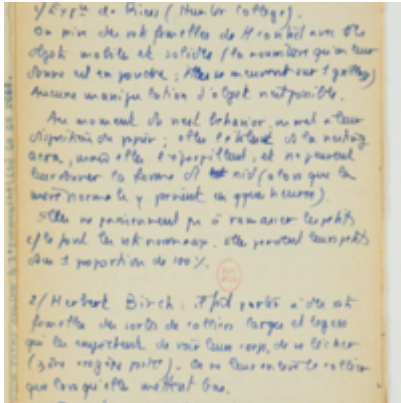 1/ Expce de Riess (Hunter College).
On prive des rats femelles de tt contact avec des
objets mobiles et solides (la nourriture qu'on leur
donne est en poudre ;
Aucune manipulation d'objet n'est possible.
Au moment du nest behavior, on met à leur
disposition du papier ; elles
mais elles l'éparpillent, et ne peuvent
la forme du nid (alors que la
normale y parvient en qques heures).
Elles ne parviennent pas à ramasser les petits
c/ le font les rats normaux. elles perdent leurs petits
dans 1 proportion de 100%.
2/ Herbert Birch. Il fait porter à des rats
femelles des sortes de colliers larges et légers
qui les empêchent de voir leur corps, de se lécher
On ne leur enlève le collier
que lorsqu'elles mettent bas.